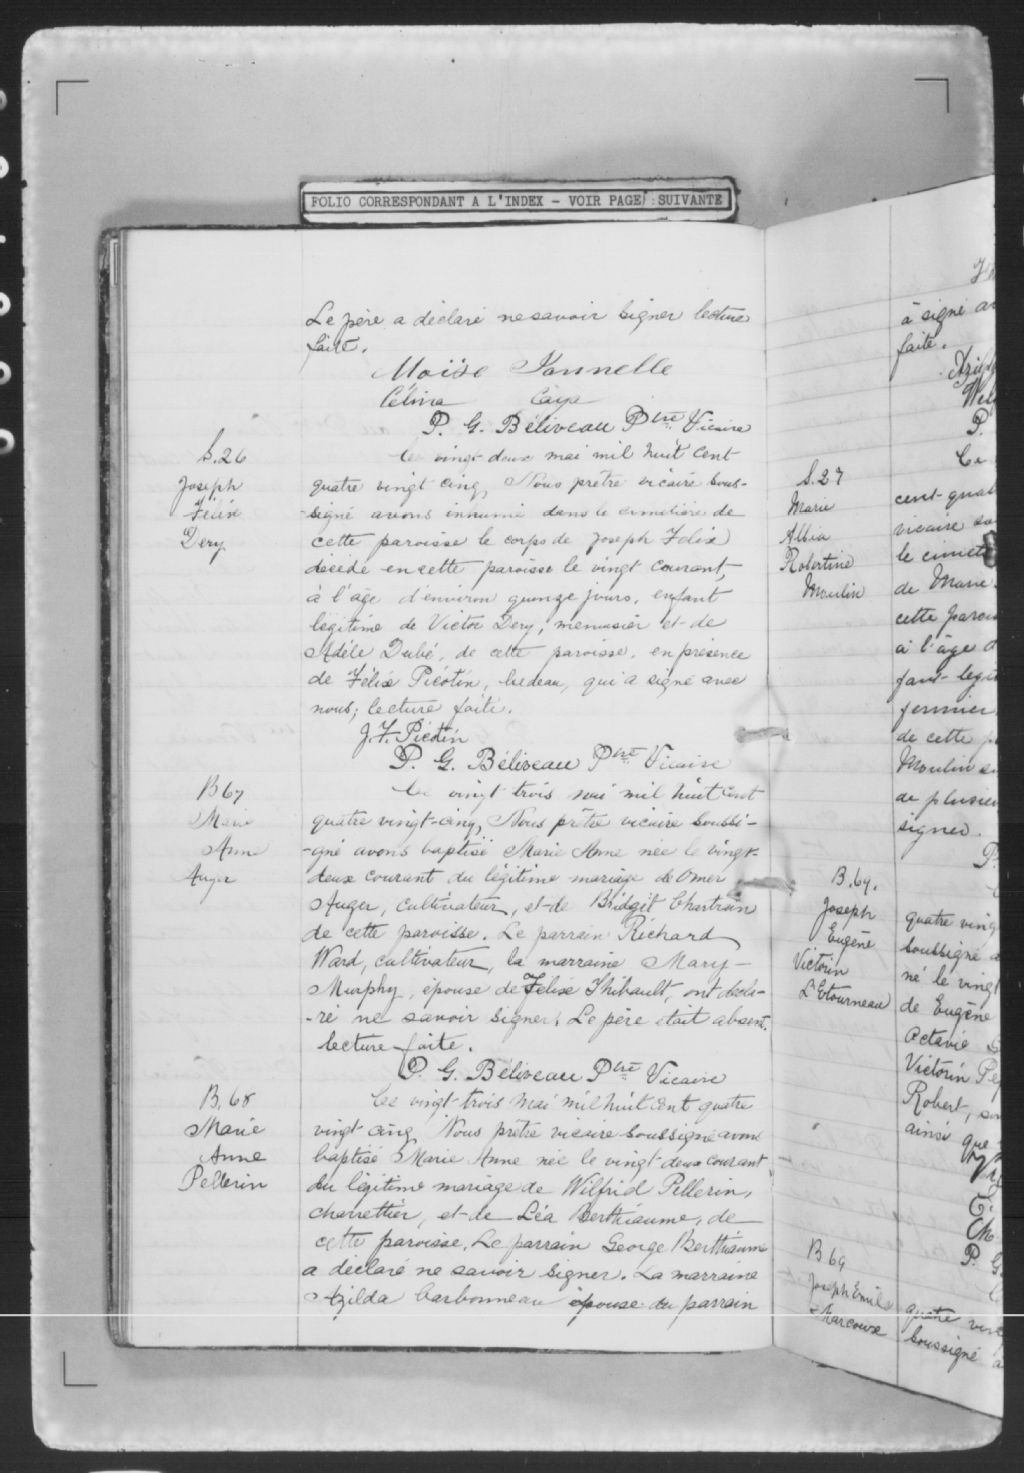 FOLIO CORRESPONDANT A L'INDEX - VOIR PAGE SUIVANTE
Le père a déclaré ne savoir signer lecture
faite.
Moïse Jannelle
Célina Caya
P. G. Béliveau Ptre Vicaire
S.26
Joseph
Félix
Dery
Le vingt-deux mai mil huit cent
quatre vingt cinq, Nous prêtre vicaire sous-
-signé avons inhumé dans le cimetière de
cette paroisse le corps de Joseph Felix
décédé en cette paroisse le vingt courant,
à l'âge d'environ quinze jours, enfant
légitime de Victor Dery, menuisier et de
Adèle Dubé, de cette paroisse, en présence
de Félix Picotin, bedeau, qui a signé avec
nous; lecture faite.
J. F. Picotin
P. G. Béliveau Ptre Vicaire
B67
Marie
Anne
Auger
Le vingt trois mai mil huit cent
quatre vingt-cinq, Nous prêtre vicaire soussi-
-gné avons baptisé Marie Anne née le vingt-
deux courant du légitime mariage de Omer
Auger, cultivateur, et de Bridgit Chartrain
de cette paroisse. Le parrain Richard
Ward, cultivateur, la marraine Mary
Murphy, épouse de Félix Thibault, ont décla-
-ré ne savoir signer. Le père était absent.
lecture faite.
P. G. Béliveau Ptre Vicaire
B. 68
Marie
Anne
Pellerin
Le vingt-trois mai mil huit cent quatre
vingt cinq Nous prêtre vicaire soussigné avons
baptisé Marie Anne née le vingt deux courant
du légitime mariage de Wilfrid Pellerin,
charrettier, et de Léa Berthiaume, de
cette paroisse. Le parrain George Berthiaume
a déclaré ne savoir signer. La marraine
Azilda Carbonneau épouse du parrain
à signé
faite.
P.
S.27
Marie
Albia
Robertine
Moulin
vicaire
de Marie
à l'âge
fermier
de cette
Moulin
de
signer.
B.69.
Joseph
Eugène
Victorin
L'Etourneau
quatre
soussigné
né le vingt
de Eugène
Octavie
Victorin
Robert,
ainsi que
P. G.
B69
Joseph Emile
Marcoux
quatre
soussigné